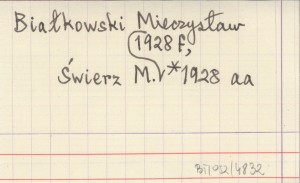 Białkowski Mieczysław
1928 f,
Świerz M. *1928 aa
BT/012/4832